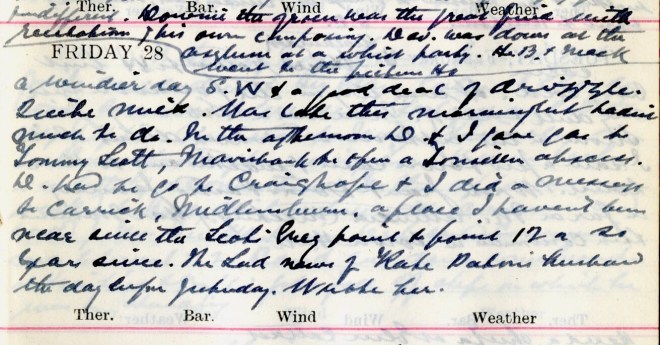 Ther. Bar. Wind Weather
the green was the great find with
recitations of his own composing. Dav. was down at the
FRIDAY 28 asylum at a whist party. H.B. + Mack
went to the pictures
a windier day S.W & a good deal of drizzle.
Quite thick. Was late this morning but hadn't
much to do. In the afternoon D. & I gave gas to
Tommy Scott, Mavisbank to open a Tonsillar abscess.
D. had to go to Craighope & I did a message
to Carrick, Midlemburn, a place I haven't been
near since the Scots Greys point to point 12 or so
years since. We had news of Kate Dahon's husband
the day before yesterday. Wrote her.
Ther. Bar. Wind Weather